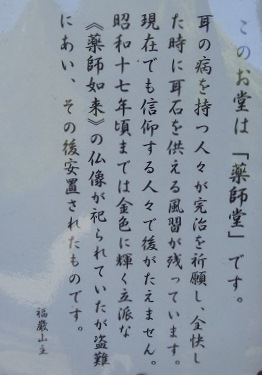 このお堂は「薬師堂」です。
耳の病を持つ人々が完治を祈願し、全快し
た時に耳石を供える風習が残っています。
現在でも信仰する人々で後がたえません。
昭和十七年頃までは金色に輝く立派な
《薬師如来》の仏像が祀られていたが盗難
にあい、その後安置されたものです。
福巌山主